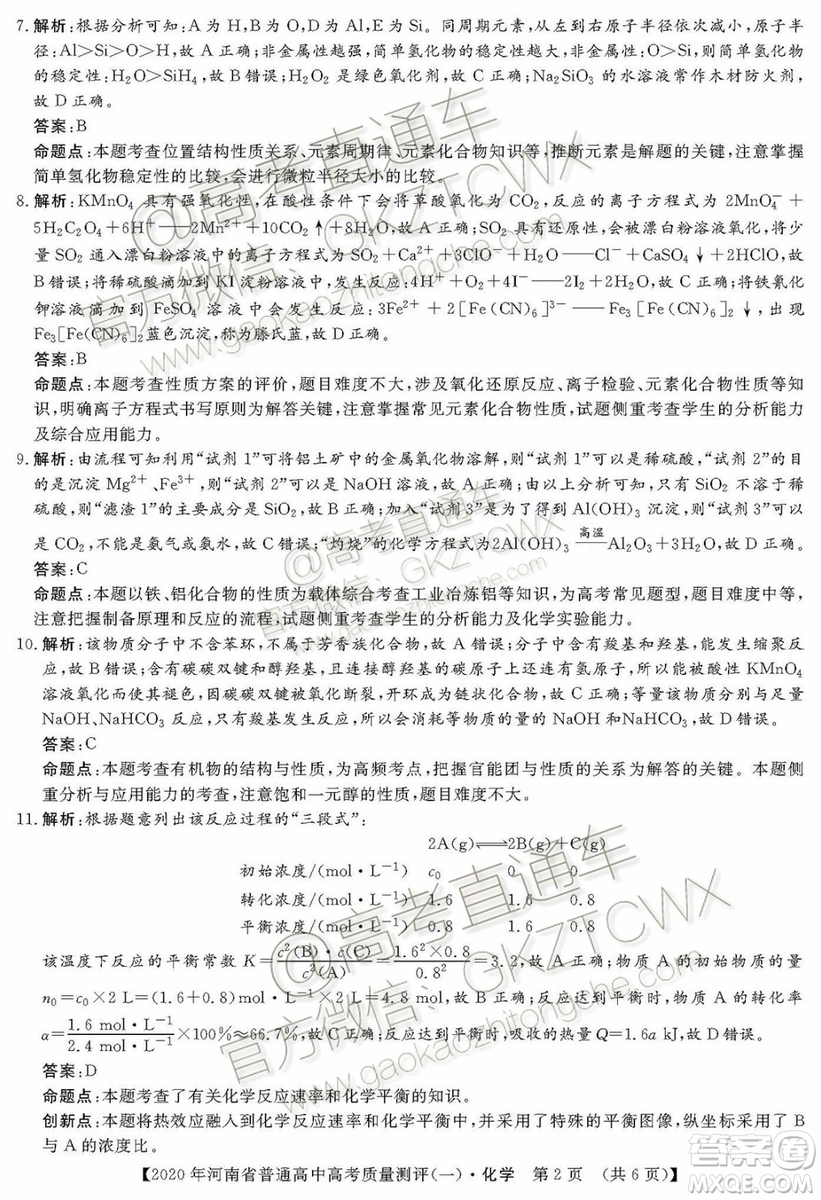 7. 解析:根据分析可知:A 为 H,B 为 O,D 为 Al,E 为 Si。同周期元素,从左到右原子半径依次减小,原子半
径:Al>Si>O>H,故 A 正确;非金属性越强,简单氢化物的稳定性越大,非金属性:O>Si,则简单氢化物
的稳定性:H₂O>SiH₄,故 B 错误;H₂O₂ 是绿色氧化剂,故 C 正确;Na₂SiO₃ 的水溶液常作木材防火剂,
故 D 正确。
答案:B
命题点:本题考查位置结构性质关系、元素周期律、元素化合物知识等,推断元素是解题的关键,注意掌握
简单氢化物稳定性的比较,会进行微粒半径大小的比较。
8. 解析:KMnO₄ 具有强氧化性,在酸性条件下会将草酸氧化为 CO₂,反应的离子方程式为 2MnO₄⁻ +
5H₂C₂O₄+6H⁺══2Mn²⁺+10CO₂↑+8H₂O,故 A 正确;SO₂ 具有还原性,会被漂白粉溶液氧化,将少
量 SO₂ 通入漂白粉溶液中的离子方程式为 SO₂+Ca²⁺+3ClO⁻+H₂O══Cl⁻+CaSO₄↓+2HClO,故
B 错误;将稀硫酸滴加到 KI 淀粉溶液中,发生反应:4H⁺+O₂+4I⁻══2I₂+2H₂O,故 C 正确;将铁氰化
钾溶液滴加到 FeSO₄ 溶液中会发生反应:3Fe²⁺+2[Fe(CN)₆]³⁻══Fe₃[Fe(CN)₆]₂↓,出现
Fe₃[Fe(CN)₆]₂ 蓝色沉淀,称为滕氏蓝,故 D 正确。
答案:B
命题点:本题考查性质方案的评价,题目难度不大,涉及氧化还原反应、离子检验、元素化合物性质等知
识,明确离子方程式书写原则为解答关键,注意掌握常见元素化合物性质,试题侧重考查学生的分析能力
及综合应用能力。
9. 解析:由流程可知利用“试剂 1”可将铝土矿中的金属氧化物溶解,则“试剂 1”可以是稀硫酸,“试剂 2”的目
的是沉淀 Mg²⁺、Fe³⁺,则“试剂 2”可以是 NaOH 溶液,故 A 正确;由以上分析可知,只有 SiO₂ 不溶于稀
硫酸,则“滤渣 1”的主要成分是 SiO₂,故 B 正确;加入“试剂3”是为了得到 Al(OH)₃ 沉淀,则“试剂 3”可以
是 CO₂,不能是氨气或氨水,故 C 错误;“灼烧”的化学方程式为2Al(OH)₃ ══高温══ Al₂O₃+3H₂O,故 D 正确。
答案:C
命题点:本题以铁、铝化合物的性质为载体综合考查工业冶炼铝等知识,为高考常见题型,题目难度中等,
注意把握制备原理和反应的流程,试题侧重考查学生的分析能力及化学实验能力。
10. 解析:该物质分子中不含苯环,不属于芳香族化合物,故 A 错误;分子中含有羧基和羟基,能发生缩聚反
应,故 B 错误;含有碳碳双键和醇羟基,且连接醇羟基的碳原子上有氢原子,所以能被酸性 KMnO₄
溶液氧化而使其褪色,因碳碳双键被氧化断裂,开环成为链状化合物,故 C 正确;等量该物质分别与足量
NaOH、NaHCO₃ 反应,只有羧基能发生反应,所以消耗等物质的量的 NaOH 和 NaHCO₃,故 D 错误。
答案:C
命题点:本题考查有机物的结构与性质,为高频考点,把握官能团与性质的关系为解答的关键。本题侧
重分析与应用能力的考查,注意饱和一元醇的性质,题目难度不大。
11. 解析:根据题意列出该反应过程的“三段式”:
2A(g)⇌2B(g)+C(g)
初始浓度/(mol·L⁻¹) c₀ 0 0
转化浓度/(mol·L⁻¹) 1.6 1.6 0.8
平衡浓度/(mol·L⁻¹) 0.8 1.6 0.8
该温度下反应的平衡常数 K=c²(B)·c(C)/c²(A)=1.6²×0.8/0.8²=3.2,故 A 正确;物质 A 的初始物质的量
n₀=c₀×2 L=(1.6+0.8)mol·L⁻¹×2 L=4.8 mol,故 B 正确;反应达到平衡时,物质 A 的转化率
α=1.6 mol·L⁻¹/2.4 mol·L⁻¹×100%≈66.7%,故 C 正确;反应达到平衡时,吸收的热量 Q=1.6a kJ,故 D 错误。
答案:D
命题点:本题考查了有关化学反应速率和化学平衡的知识。
创新点:本题将热效应融入到化学反应速率和化学平衡中,并采用了特殊的平衡图像,纵坐标采用了 B
与 A 的浓度比。
【2020 年河南省普通高中高考质量测评(一)·化学 第 2 页 (共 6 页)】
@高考直通车
官方微信:GKZTCWX
www.gaokaozhitongche.com
@高考直通车
官方微信:GKZTCWX
www.gaokaozhitongche.com
@高考直通车
官方微信:GKZTCWX
www.gaokaozhitongche.com
答案圈
MXQE.COM